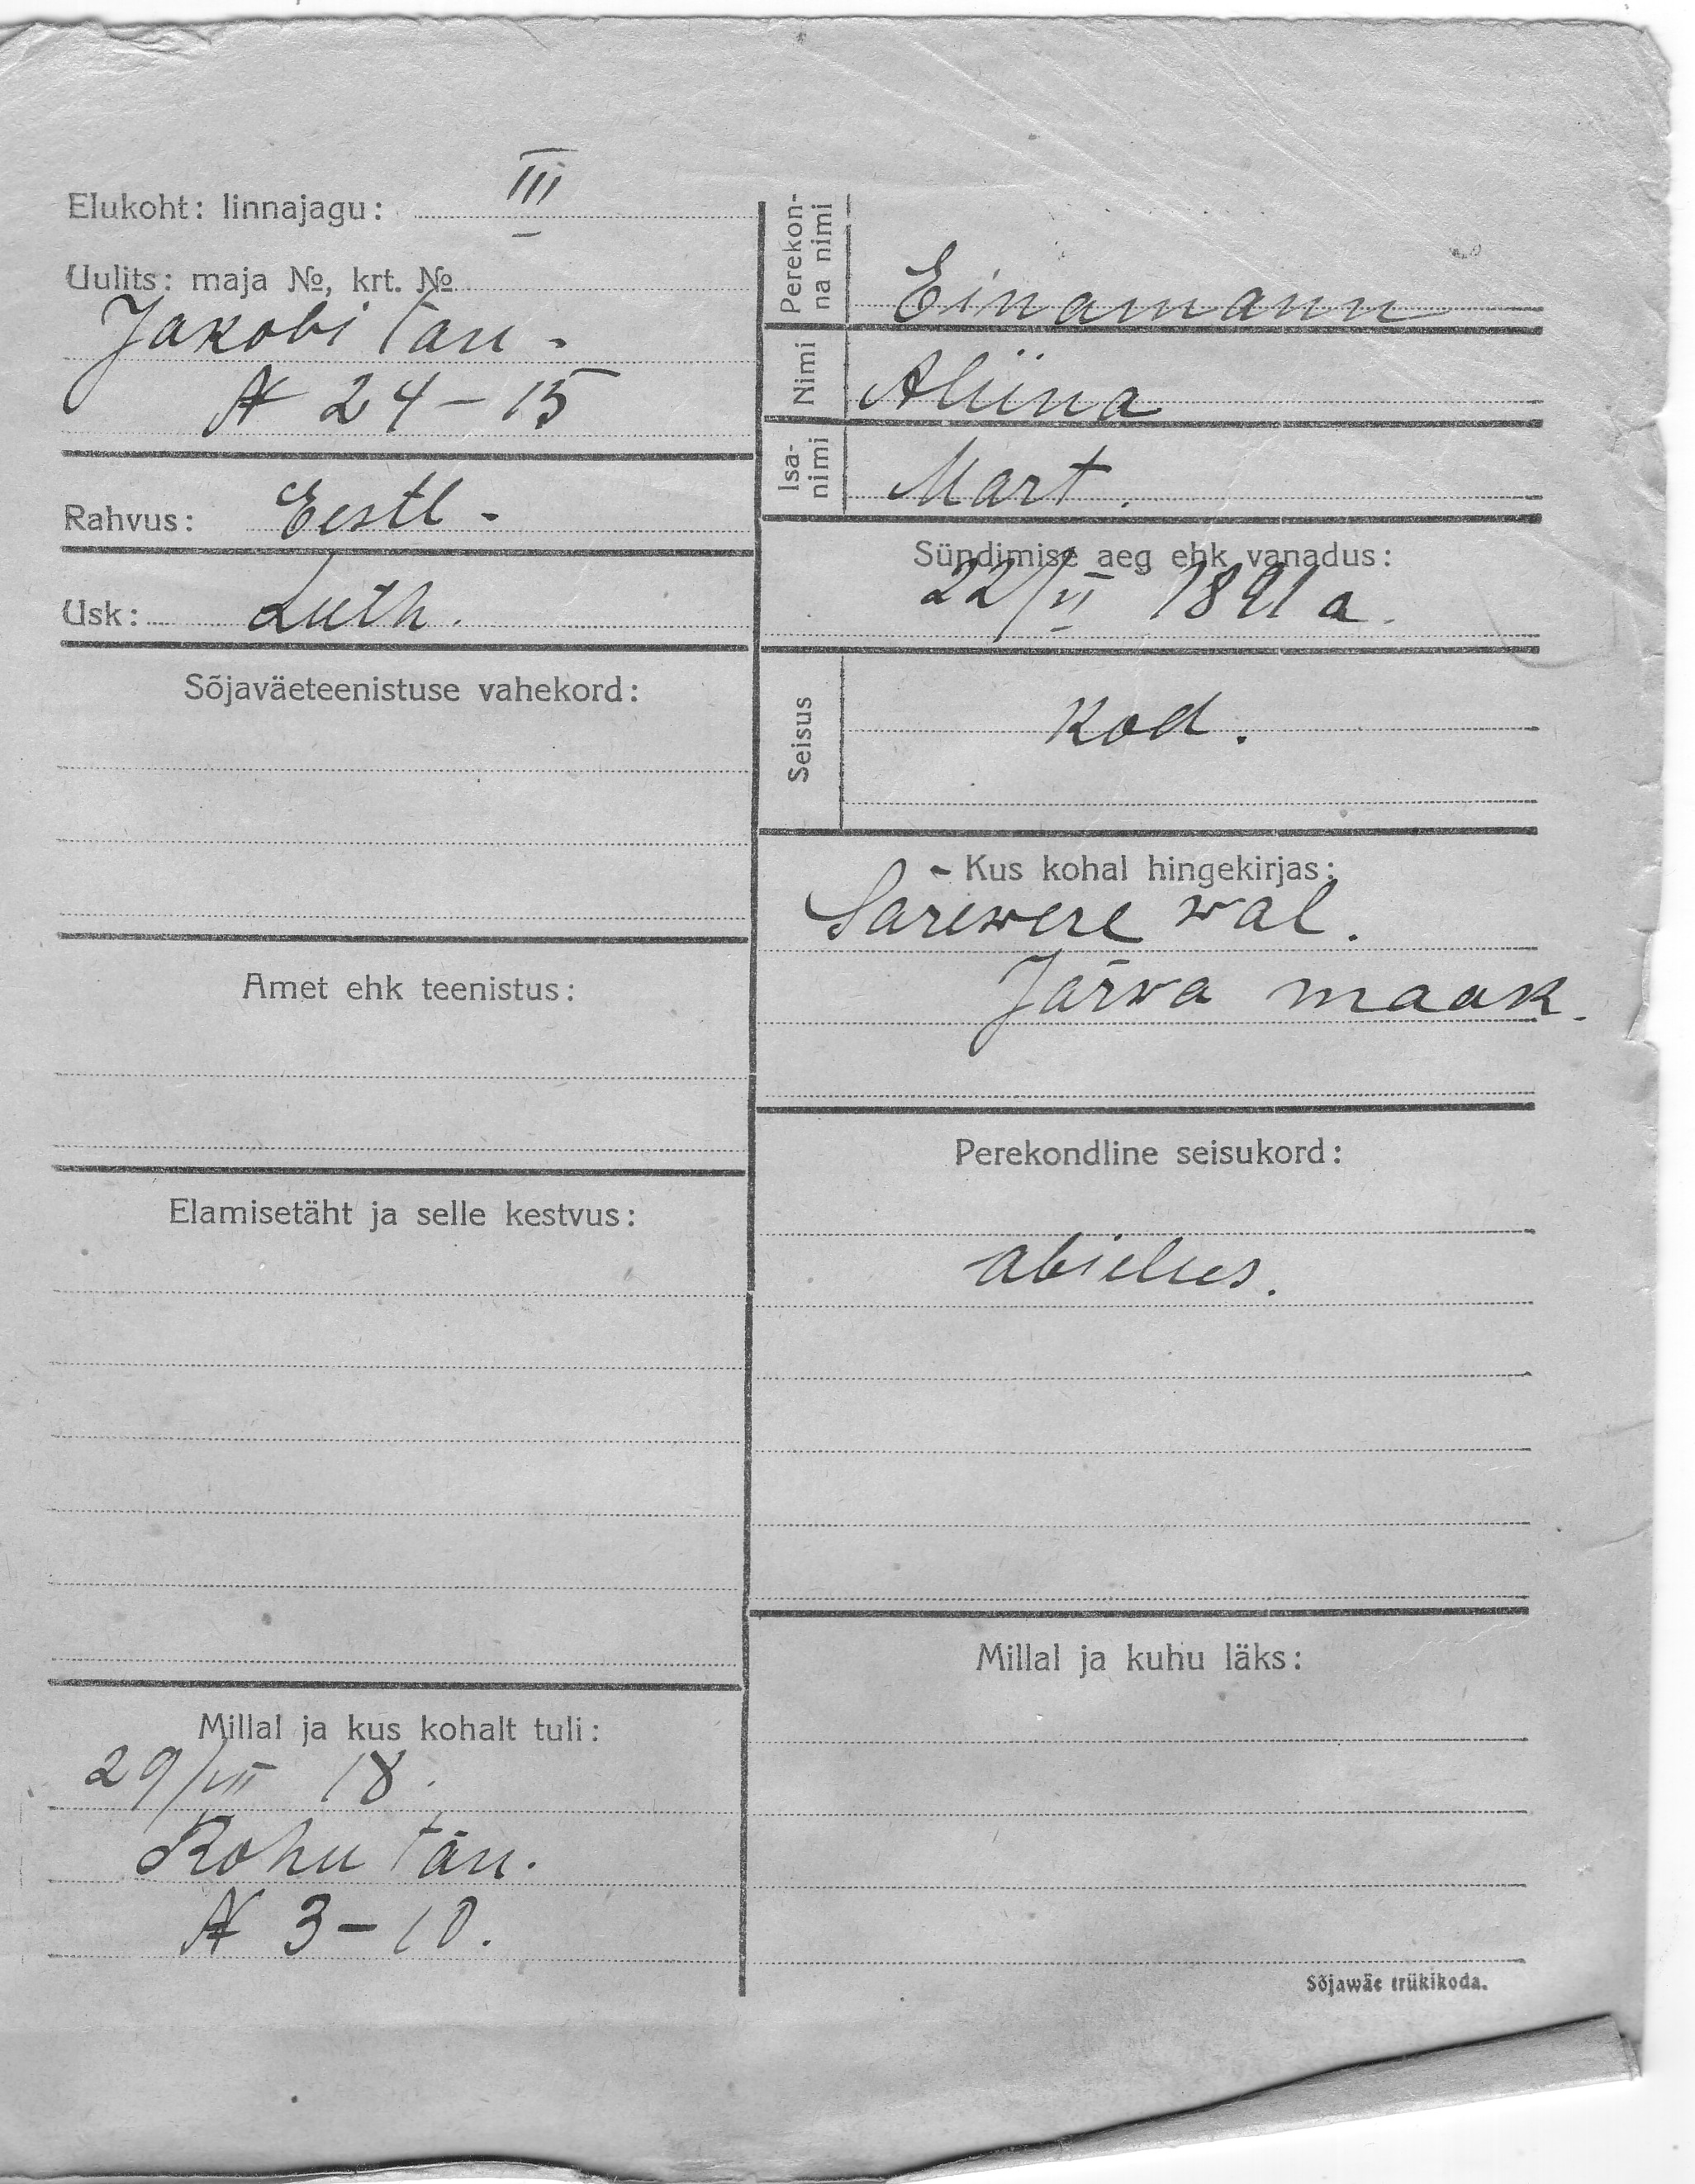 Elukoht: linnajagu: III
Uulits: maja №, krt. №
Jakobi tän -
№ 24 - 15
Rahvus: Eestl -
Usk: Luth.
Sõjaväeteenistuse vahekord:
Amet ehk teenistus:
Elamisetäht ja selle kestvus:
Millal ja kus kohalt tuli:
29/VII 18.
Rohu tän.
№ 3 - 10.
Perekon-
na nimi
Einamann
Nimi Aliina
Isa-
nimi
Mart.
Sündimise aeg ehk vanadus:
22/VI 1891 a.
Seisus Kod.
- Kus kohal hingekirjas:
Särewere wal.
Järwa maak.
Perekondline seisukord:
abielus.
Millal ja kuhu läks:
Sõjawäe trükikoda.